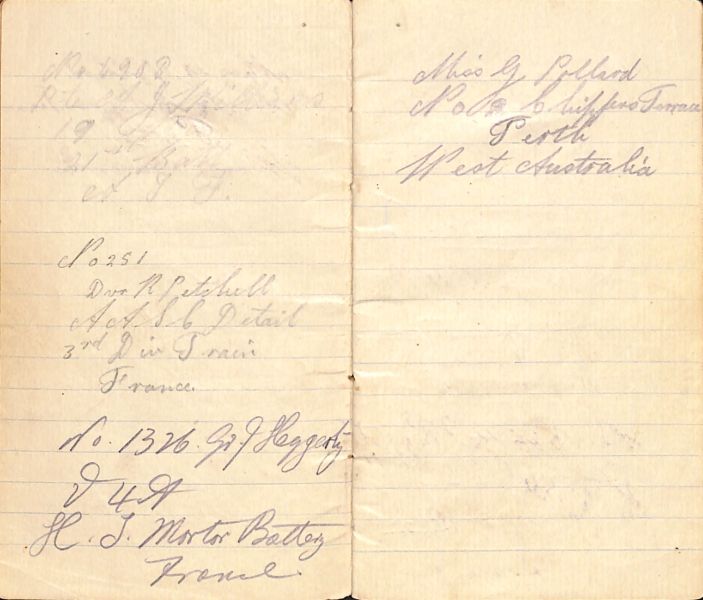 No 6983
A J Williams
19
21st Batt
A I F.
No 251
Dvr R Petchell
A A S C Detail
3rd Div Train
France
No. 1326. Gr J Heggerty
V 4 A
H. T. Mortor Battery
France.
Miss G Pollard
No 2 Chippers Terrace
Perth
West Australia